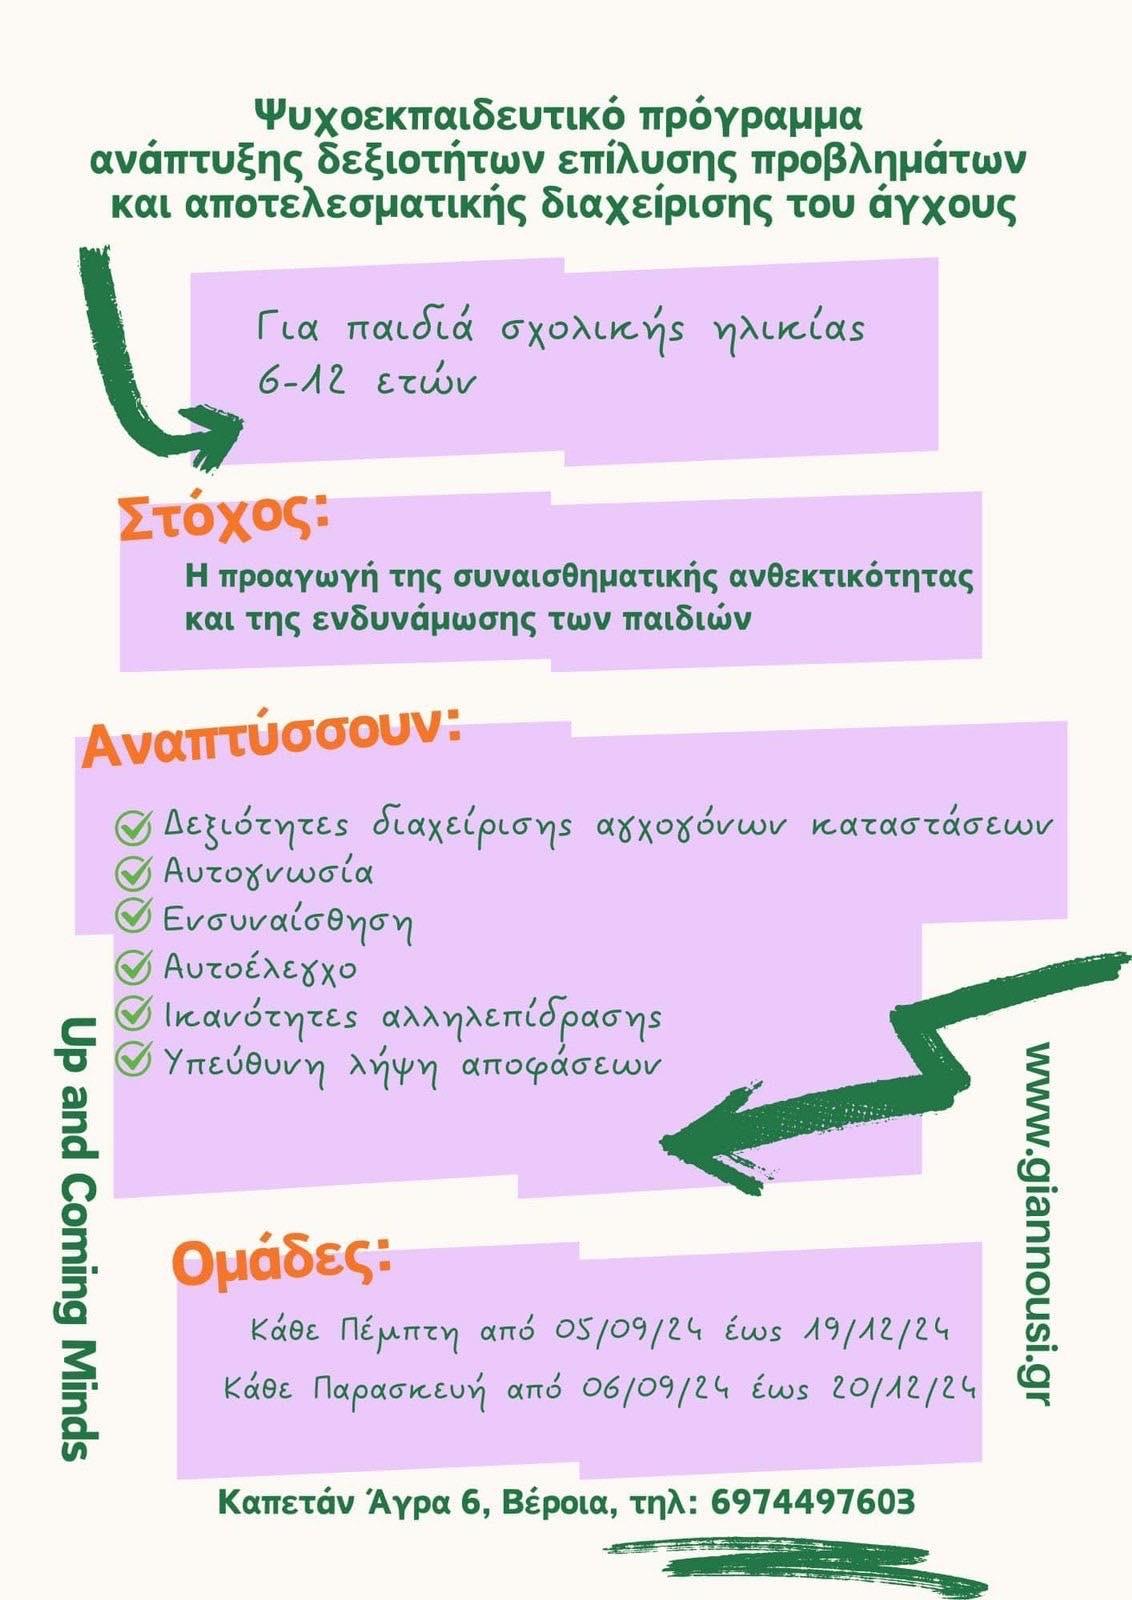 Ψυχοεκπαιδευτικό πρόγραμμα
ανάπτυξης δεξιοτήτων επίλυσης προβλημάτων
και αποτελεσματικής διαχείρισης του άγχους
Για παιδιά σχολικής ηλικίας
6-12 ετών
Στόχος:
Η προαγωγή της συναισθηματικής ανθεκτικότητας
και της ενδυνάμωσης των παιδιών
Αναπτύσσουν:
Δεξιότητες διαχείρισης αγχογόνων καταστάσεων
Αυτογνωσία
Ενσυναίσθηση
Αυτοέλεγχο
Ικανότητες αλληλεπίδρασης
Υπεύθυνη λήψη αποφάσεων
Up and Coming Minds
www.giannousi.gr
Ομάδες:
Κάθε Πέμπτη από 05/09/24 έως 19/12/24
Κάθε Παρασκευή από 06/09/24 έως 20/12/24
Καπετάν Άγρα 6, Βέροια, τηλ: 6974497603